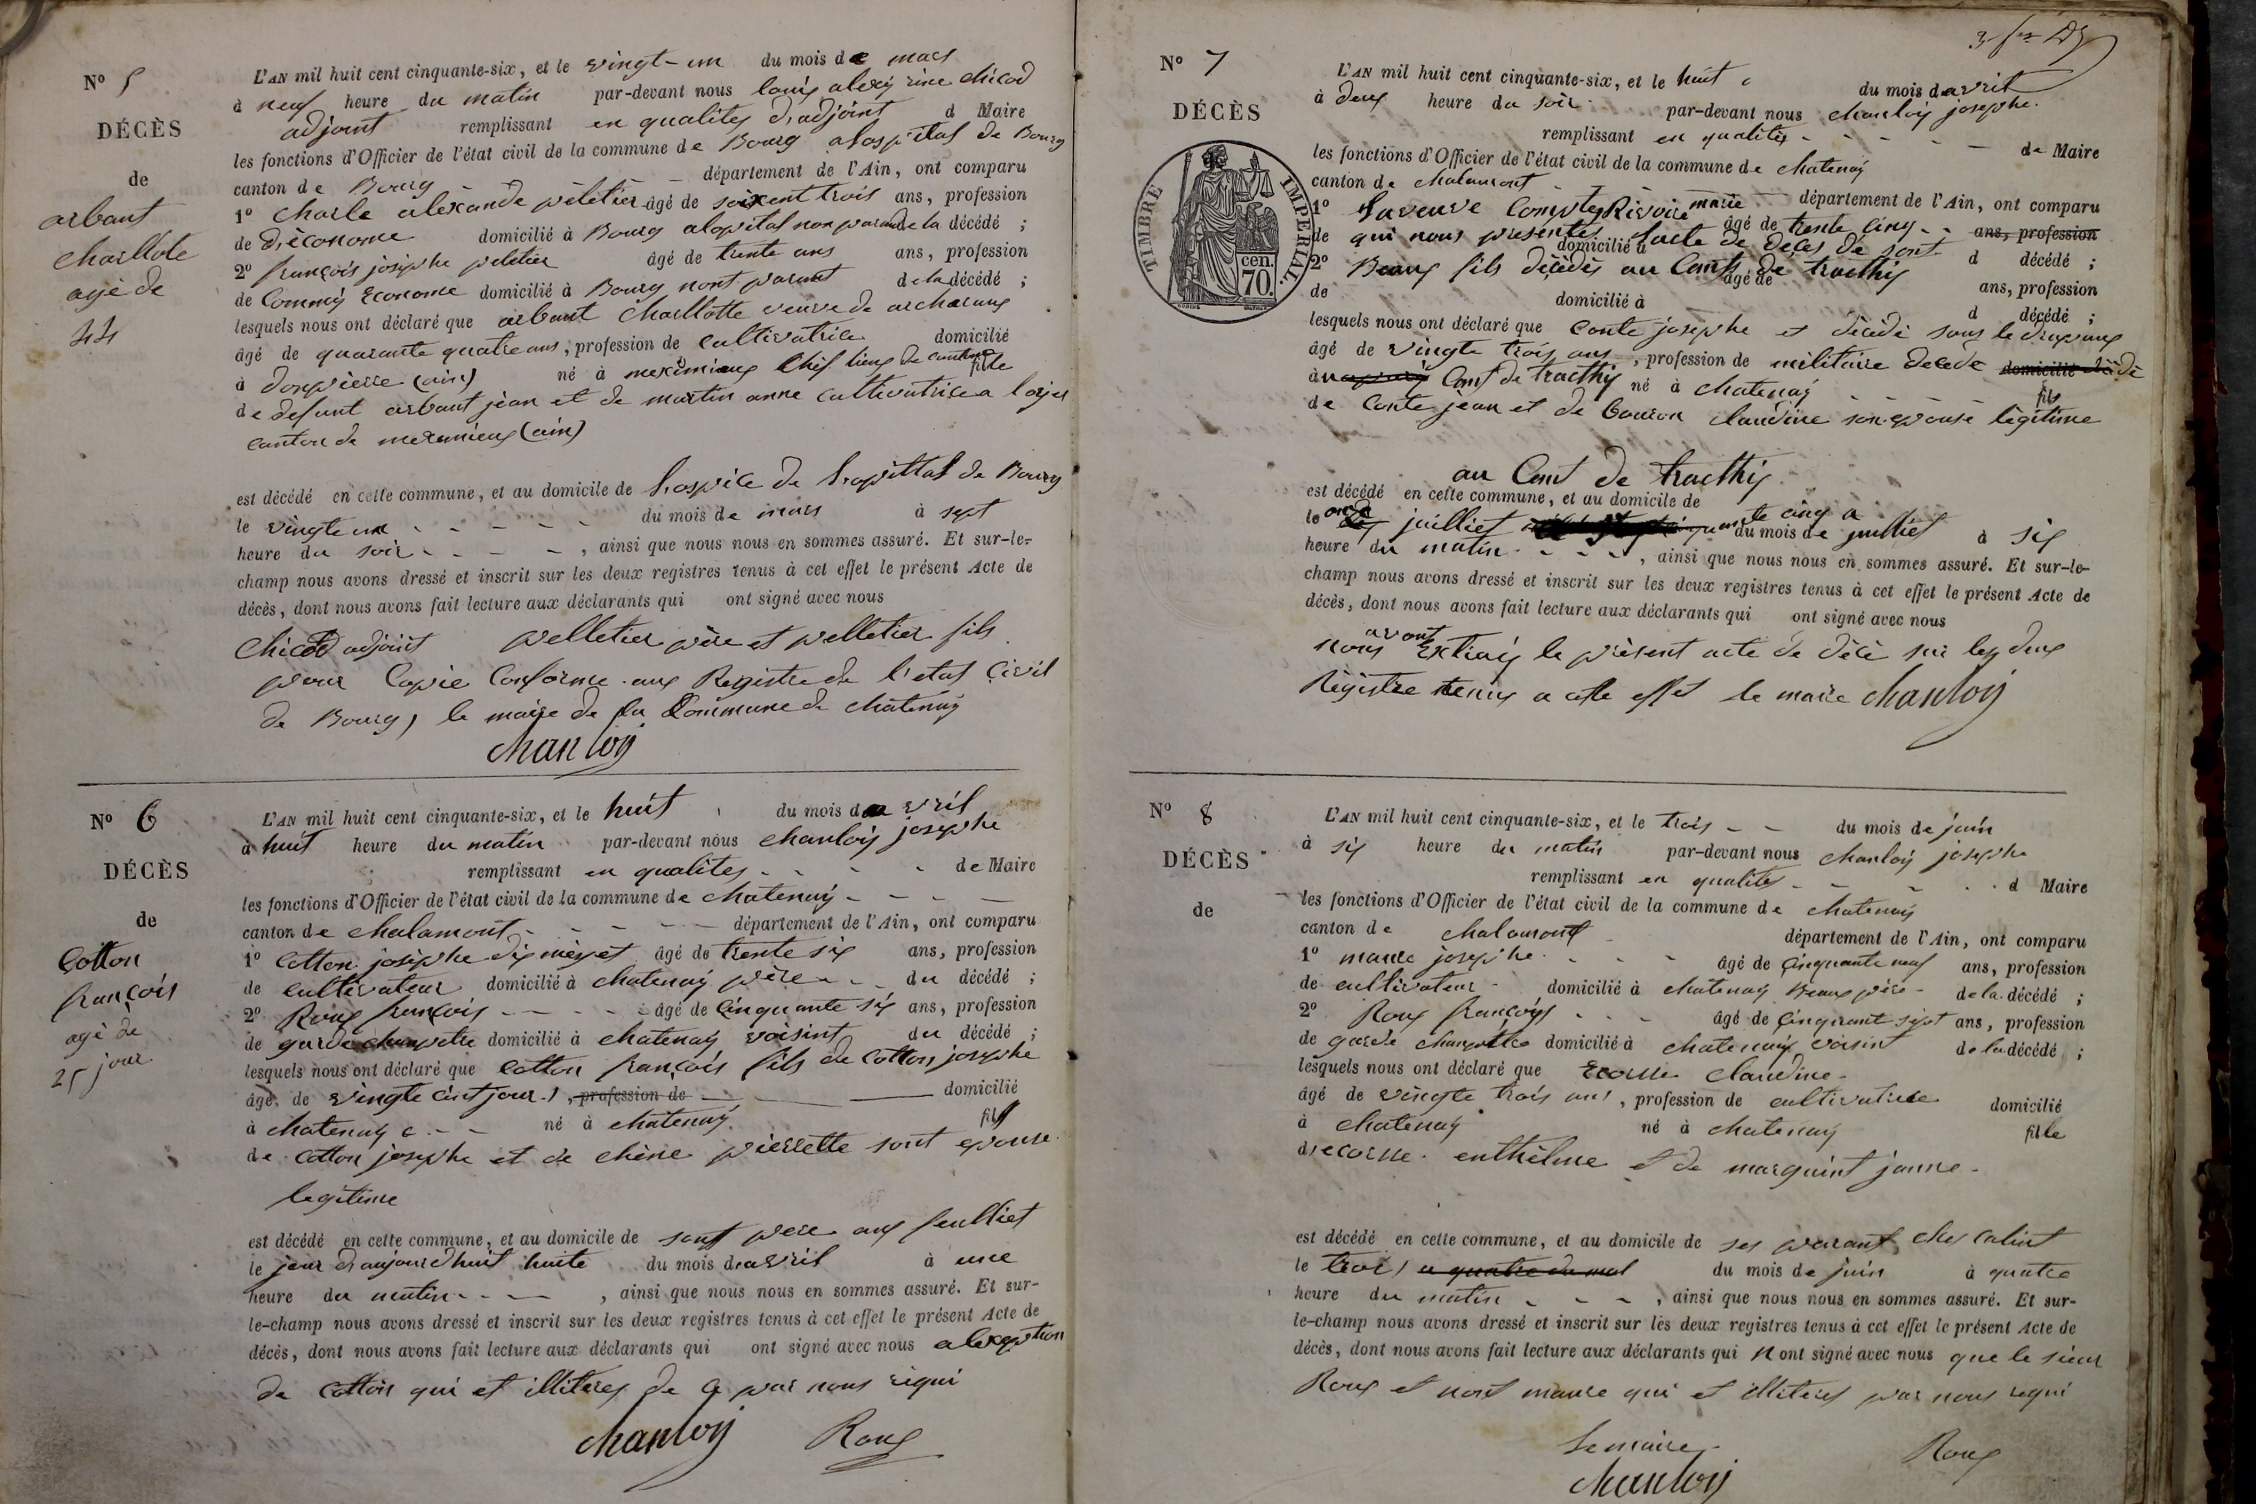 N° 5
DÉCÈS
de
arbant
charllote
agé de
44
L'AN mil huit cent cinquante-six, et le vingt-un du mois de mars
à neuf heure du matin par-devant nous louis alexis rine chicod
adjoint remplissant en qualites d'adjoint d Maire
les fonctions d'Officier de l'état civil de la commune de Bourg alospital de Bourg
canton de Bourg département de l'Ain, ont comparu
1° Charle alexandre peletier âgé de soixent trois ans, profession
de d'économe domicilié à Bourg alopital non parant de la décédé ;
2° françois josephe peletier âgé de trente ans ans, profession
de Commis Econome domicilié à Bourg nont parant de la décédé ;
lesquels nous ont déclaré que arbant Charllotte veuve de archeraux
âgé de quarante quatre ans, profession de cultivatrice domicilié
à dompierre (ain) né à meximieux Chef lieux de canton fille
de defunt arbant jean et de martin anne cultivatrice a loyes
canton de meximieux (ain)
est décédé en cette commune, et au domicile de l'ospice de l'opittal de Bourg
le vingte un du mois de mars à sept
heure du soir , ainsi que nous nous en sommes assuré. Et sur-le-
champ nous avons dressé et inscrit sur les deux registres tenus à cet effet le présent Acte de
décès, dont nous avons fait lecture aux déclarants qui ont signé avec nous
Chicod adjoint pelletier père et pelletier fils
pour Copie Conforme aux Registre de l'etat Civil
de Bourg, le maire de la Commune de châtenay
chanloy
N° 6
DÉCÈS
de
Cotton
françois
agé de
25 jour
L'AN mil huit cent cinquante-six, et le huit du mois de avril
à huit heure du matin par-devant nous chanloy josephe
remplissant en qualites de Maire
les fonctions d'Officier de l'état civil de la commune de chatenay
canton de chalamont département de l'Ain, ont comparu
1° Cotton josephe âgé de trente six ans, profession
de cultivateur domicilié à chatenay père du décédé ;
2° Roux françois âgé de cinquante six ans, profession
de garde champetre domicilié à chatenay voisint du décédé ;
lesquels nous ont déclaré que cotton françois fils de Cotton josephe
âgé de vingte cint jour , profession de domicilié
à chatenay né à chatenay fils
de cotton josephe et de chêne pierrette sont epouse
legitime
est décédé en cette commune, et au domicile de sont pere aux feulliet
le jour d'aujourdhuit huite du mois d'avril à une
heure du matin , ainsi que nous nous en sommes assuré. Et sur-
le-champ nous avons dressé et inscrit sur les deux registres tenus à cet effet le présent Acte de
décès, dont nous avons fait lecture aux déclarants qui ont signé avec nous a lexeption
de cotton qui et illiteres de ce par nous riqui
chanloy Roux
N° 7
DÉCÈS
TIMBRE IMPÉRIAL.
cen. 70.
L'AN mil huit cent cinquante-six, et le huit du mois d'avril
à deux heure du soir par-devant nous chanloy josephe
remplissant en qualites de Maire
les fonctions d'Officier de l'état civil de la commune de chatenay
canton de chalamont département de l'Ain, ont comparu
1° la veuve Comptes Rivoire marie âgé de trente cinq ans, profession
de qui nous presentes lacte de deces de sont domicilié à d décédé ;
2° Beaux fils décédés au Camp de tracthy âgé de ans, profession
de domicilié à d décédé ;
lesquels nous ont déclaré que Conte josephe et décédé sous le drapeaux
âgé de vingte trois ans , profession de militaire decede domicilié
à Camp de tracthy né à chatenay fils
de Conte jean et de bouron claudine son epouse légitime
au Camp de tracthy
est décédé en cette commune, et au domicile de
le onze juilliet du mois de juilliet à six
heure du matin , ainsi que nous nous en sommes assuré. Et sur-le-
champ nous avons dressé et inscrit sur les deux registres tenus à cet effet le présent Acte de
décès, dont nous avons fait lecture aux déclarants qui ont signé avec nous
nous avont Extrais le présent acte de décè sur les deux
Régistre tenus a cette effet le maire chanloy
N° 8
DÉCÈS
de
L'AN mil huit cent cinquante-six, et le trois du mois de juin
à six heure du matin par-devant nous chanloy josephe
remplissant en qualites d Maire
les fonctions d'Officier de l'état civil de la commune de chatenay
canton de chalamont département de l'Ain, ont comparu
1° maure josephe âgé de cinquante neuf ans, profession
de cultivateur domicilié à chatenay Beaux père de la décédé ;
2° Roux françoys âgé de cinquant sept ans, profession
de garde champêtre domicilié à chatenay voisint de la décédé ;
lesquels nous ont déclaré que Ecosse Claudine
âgé de vingte trois ans , profession de cultivatrice domicilié
à chatenay né à chatenay fille
d'ecosse enthelme et de marguint janne
est décédé en cette commune, et au domicile de ses parant chez calint
le trois a quatre du mat du mois de juin à quatre
heure du matin , ainsi que nous nous en sommes assuré. Et sur-
le-champ nous avons dressé et inscrit sur les deux registres tenus à cet effet le présent Acte de
décès, dont nous avons fait lecture aux déclarants qui n ont signé avec nous que le sieur
Roux et nont maure qui et illiteres par nous requi
Le maire Roux
chanloy